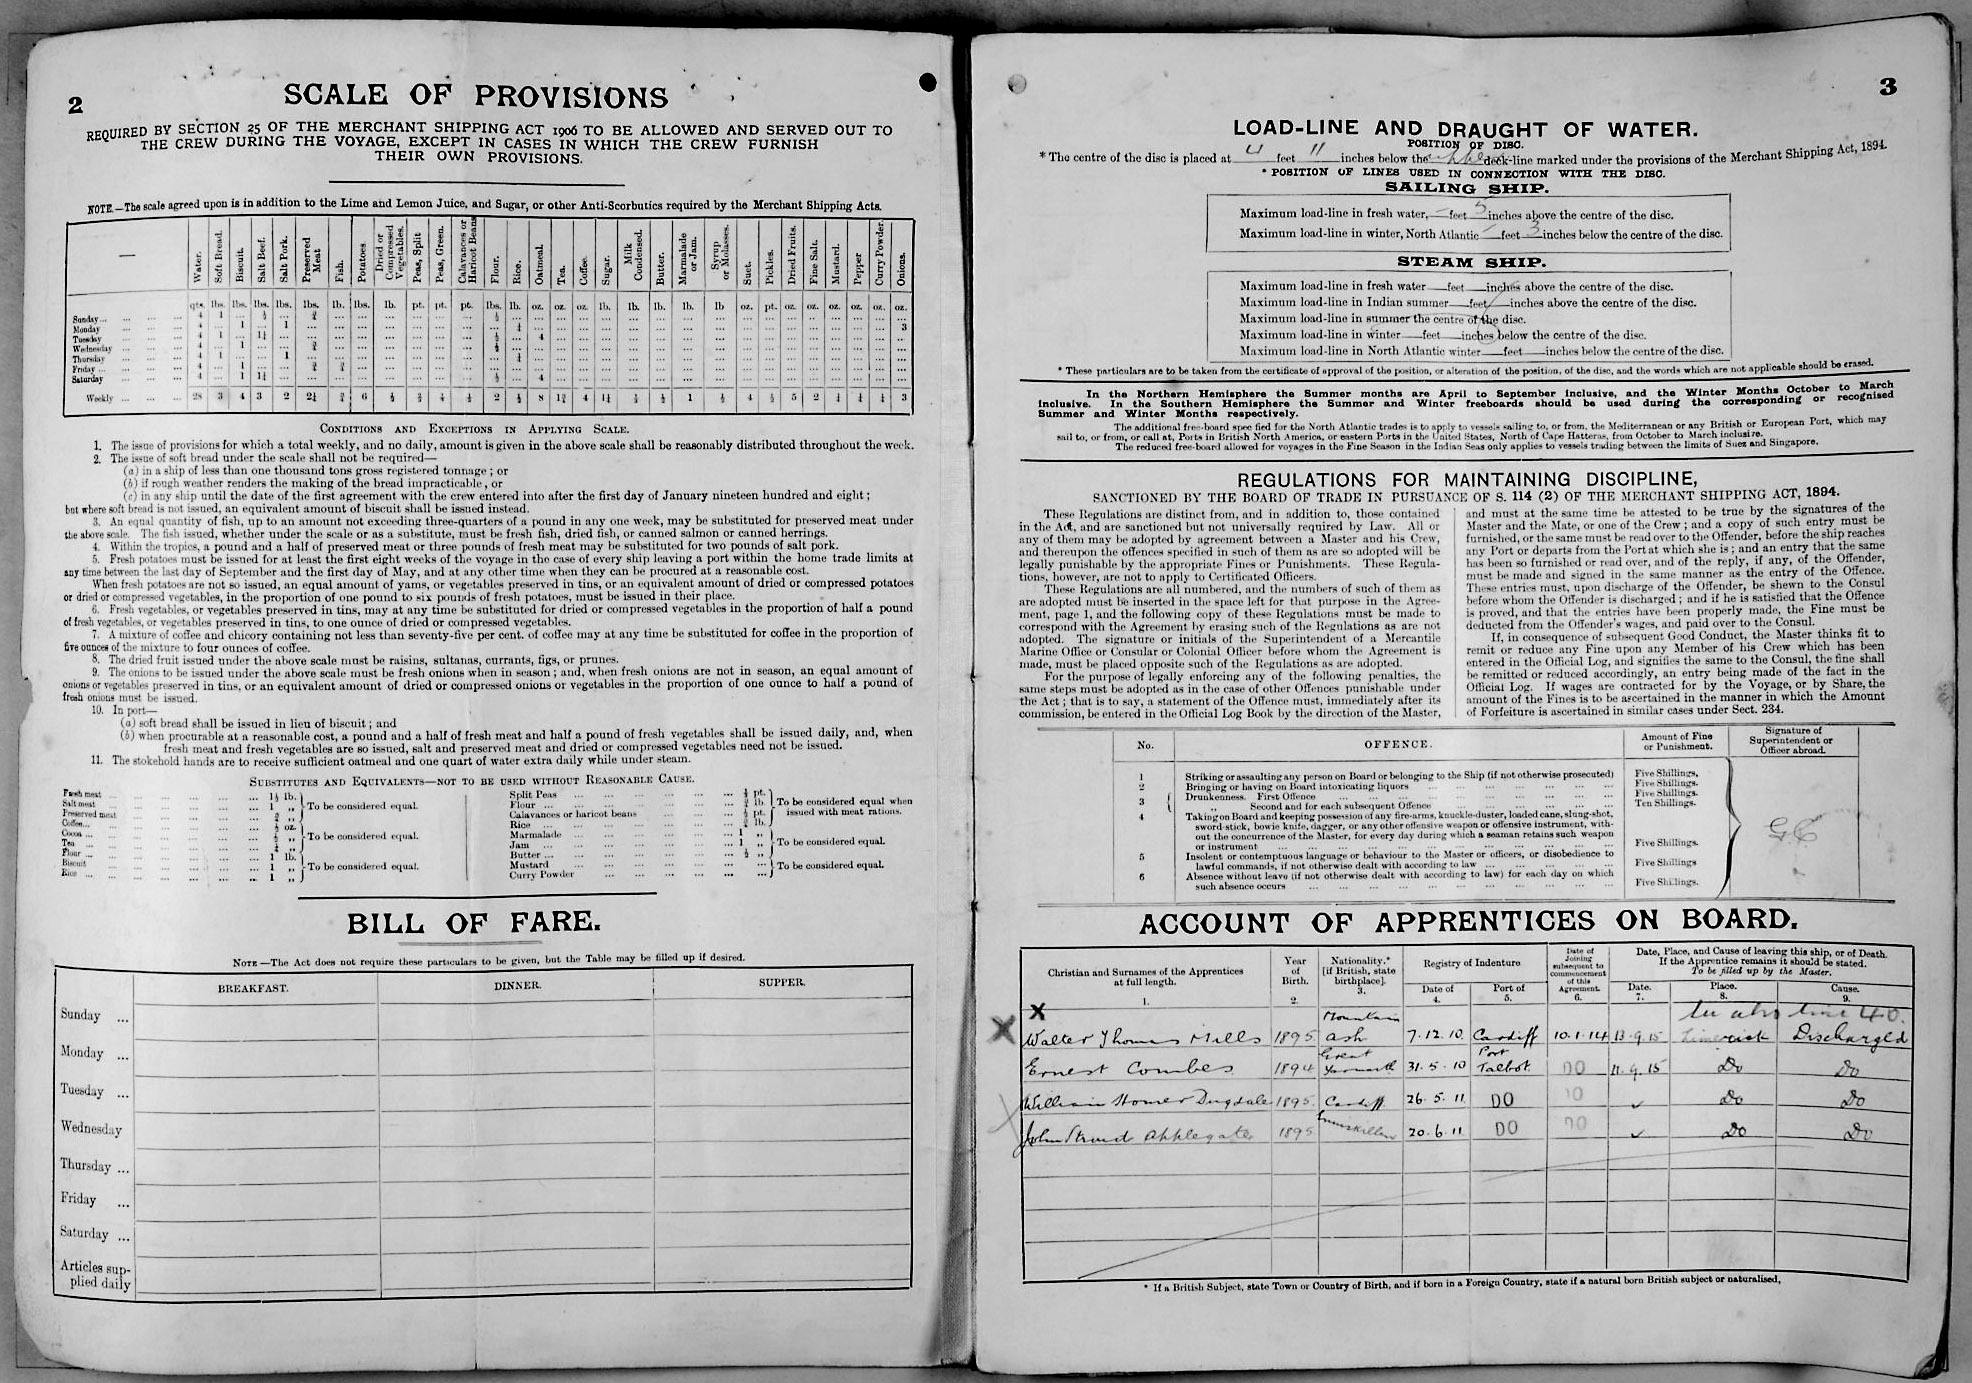 2
SCALE OF PROVISIONS
REQUIRED BY SECTION 25 OF THE MERCHANT SHIPPING ACT 1906 TO BE ALLOWED AND SERVED OUT TO
THE CREW DURING THE VOYAGE, EXCEPT IN CASES IN WHICH THE CREW FURNISH
THEIR OWN PROVISIONS.
NOTE.—The scale agreed upon is in addition to the Lime and Lemon Juice, and Sugar, or other Anti-Scorbutics required by the Merchant Shipping Acts.
— Water. Soft Bread. Biscuit. Salt Beef. Salt Pork. Preserved Meat Fish. Potatoes Dried or Compressed Vegetables. Peas, Split Peas, Green. Calavances or Haricot Beans Flour. Rice. Oatmeal. Tea. Coffee. Sugar. Milk Condensed. Butter. Marmalade or Jam. Syrup or Molasses. Suet. Pickles. Dried Fruits. Fine Salt. Mustard. Pepper Curry Powder. Onions.
qts. lbs. lbs. lbs. lbs. lbs. lb. lbs. lb. pt. pt. pt. lbs. lb. oz. oz. oz. lb. lb. lb. lb. lb oz. pt. oz. oz. oz. oz. oz. oz.
Sunday... 4 1 ... ½ ... ¾ ... ½
Monday 4 ... 1 ... 1 ... ½ ... 3
Tuesday 4 1 ... 1¼ ... ½ ... 4
Wednesday 4 ... 1 ... ¾ ... ½
Thursday 4 1 ... 1 ... ½
Friday ... 4 ... 1 ... ¾ ¾ ... ½
Saturday 4 ... 1 1¼ ... ½ ... 4
Weekly 28 3 4 3 2 2¼ ¾ 6 ½ ⅔ ⅓ ⅓ 2 ½ 8 1¾ 4 1¼ ⅓ ½ 1 ½ 4 ½ 5 2 ¼ ¼ ¼ 3
CONDITIONS AND EXCEPTIONS IN APPLYING SCALE.
1. The issue of provisions for which a total weekly, and no daily, amount is given in the above scale shall be reasonably distributed throughout the week.
2. The issue of soft bread under the scale shall not be required—
(a) in a ship of less than one thousand tons gross registered tonnage; or
(b) if rough weather renders the making of the bread impracticable, or
(c) in any ship until the date of the first agreement with the crew entered into after the first day of January nineteen hundred and eight;
but where soft bread is not issued, an equivalent amount of biscuit shall be issued instead.
3. An equal quantity of fish, up to an amount not exceeding three-quarters of a pound in any one week, may be substituted for preserved meat under
the above scale. The fish issued, whether under the scale or as a substitute, must be fresh fish, dried fish, or canned salmon or canned herrings.
4. Within the tropics, a pound and a half of preserved meat or three pounds of fresh meat may be substituted for two pounds of salt pork.
5. Fresh potatoes must be issued for at least the first eight weeks of the voyage in the case of every ship leaving a port within the home trade limits at
any time between the last day of September and the first day of May, and at any other time when they can be procured at a reasonable cost.
When fresh potatoes are not so issued, an equal amount of yams, or vegetables preserved in tins, or an equivalent amount of dried or compressed potatoes
or dried or compressed vegetables, in the proportion of one pound to six pounds of fresh potatoes, must be issued in their place.
6. Fresh vegetables, or vegetables preserved in tins, may at any time be substituted for dried or compressed vegetables in the proportion of half a pound
of fresh vegetables, or vegetables preserved in tins, to one ounce of dried or compressed vegetables.
7. A mixture of coffee and chicory containing not less than seventy-five per cent. of coffee may at any time be substituted for coffee in the proportion of
five ounces of the mixture to four ounces of coffee.
8. The dried fruit issued under the above scale must be raisins, sultanas, currants, figs, or prunes.
9. The onions to be issued under the above scale must be fresh onions when in season; and, when fresh onions are not in season, an equal amount of
onions or vegetables preserved in tins, or an equivalent amount of dried or compressed onions or vegetables in the proportion of one ounce to half a pound of
fresh onions must be issued.
10. In port—
(a) soft bread shall be issued in lieu of biscuit; and
(b) when procurable at a reasonable cost, a pound and a half of fresh meat and half a pound of fresh vegetables shall be issued daily, and, when
fresh meat and fresh vegetables are so issued, salt and preserved meat and dried or compressed vegetables need not be issued.
11. The stokehold hands are to receive sufficient oatmeal and one quart of water extra daily while under steam.
SUBSTITUTES AND EQUIVALENTS—NOT TO BE USED WITHOUT REASONABLE CAUSE.
Fresh meat ... 1½ lb.
Salt meat ... 1 „ To be considered equal.
Preserved meat ... ¾ „
Coffee... ½ oz.
Cocoa ... „ To be considered equal.
Tea ... ¼ „
Flour ... 1 lb.
Biscuit 1 „ To be considered equal.
Rice ... 1 „
Split Peas ... pt.
Flour ... lb. To be considered equal when
Calavances or haricot beans ... pt. issued with meat rations.
Rice ... lb.
Marmalade ... 1 „
Jam ... 1 „ To be considered equal.
Butter ... ½ „
Mustard ... To be considered equal.
Curry Powder ...
BILL OF FARE.
NOTE—The Act does not require these particulars to be given, but the Table may be filled up if desired.
BREAKFAST. DINNER. SUPPER.
Sunday ...
Monday ...
Tuesday ...
Wednesday
Thursday ...
Friday ...
Saturday ...
Articles sup-
plied daily
3
LOAD-LINE AND DRAUGHT OF WATER.
POSITION OF DISC.
* The centre of the disc is placed at 4 feet 11 inches below the upper deck-line marked under the provisions of the Merchant Shipping Act, 1894.
* POSITION OF LINES USED IN CONNECTION WITH THE DISC.
SAILING SHIP.
Maximum load-line in fresh water, — feet 5 inches above the centre of the disc.
Maximum load-line in winter, North Atlantic — feet 3 inches below the centre of the disc.
STEAM SHIP.
Maximum load-line in fresh water feet inches above the centre of the disc.
Maximum load-line in Indian summer feet inches above the centre of the disc.
Maximum load-line in summer the centre of the disc.
Maximum load-line in winter feet inches below the centre of the disc.
Maximum load-line in North Atlantic winter feet inches below the centre of the disc.
* These particulars are to be taken from the certificate of approval of the position, or alteration of the position, of the disc, and the words which are not applicable should be erased.
In the Northern Hemisphere the Summer months are April to September inclusive, and the Winter Months October to March
inclusive. In the Southern Hemisphere the Summer and Winter freeboards should be used during the corresponding or recognised
Summer and Winter Months respectively.
The additional free-board specified for the North Atlantic trades is to apply to vessels sailing to, or from, the Mediterranean or any British or European Port, which may
sail to, or from, or call at, Ports in British North America, or eastern Ports in the United States, North of Cape Hatteras, from October to March inclusive.
The reduced free-board allowed for voyages in the Fine Season in the Indian Seas only applies to vessels trading between the limits of Suez and Singapore.
REGULATIONS FOR MAINTAINING DISCIPLINE,
SANCTIONED BY THE BOARD OF TRADE IN PURSUANCE OF S. 114 (2) OF THE MERCHANT SHIPPING ACT, 1894.
These Regulations are distinct from, and in addition to, those contained
in the Act, and are sanctioned but not universally required by Law. All or
any of them may be adopted by agreement between a Master and his Crew,
and thereupon the offences specified in such of them as are so adopted will be
legally punishable by the appropriate Fines or Punishments. These Regula-
tions, however, are not to apply to Certificated Officers.
These Regulations are all numbered, and the numbers of such of them as
are adopted must be inserted in the space left for that purpose in the Agree-
ment, page 1, and the following copy of these Regulations must be made to
correspond with the Agreement by erasing such of the Regulations as are not
adopted. The signature or initials of the Superintendent of a Mercantile
Marine Office or Consular or Colonial Officer before whom the Agreement is
made, must be placed opposite such of the Regulations as are adopted.
For the purpose of legally enforcing any of the following penalties, the
same steps must be adopted as in the case of other Offences punishable under
the Act; that is to say, a statement of the Offence must, immediately after its
commission, be entered in the Official Log Book by the direction of the Master,
and must at the same time be attested to be true by the signatures of the
Master and the Mate, or one of the Crew; and a copy of such entry must be
furnished, or the same must be read over to the Offender, before the ship reaches
any Port or departs from the Port at which she is; and an entry that the same
has been so furnished or read over, and of the reply, if any, of the Offender,
must be made and signed in the same manner as the entry of the Offence.
These entries must, upon discharge of the Offender, be shewn to the Consul
before whom the Offender is discharged; and if he is satisfied that the Offence
is proved, and that the entries have been properly made, the Fine must be
deducted from the Offender's wages, and paid over to the Consul.
If, in consequence of subsequent Good Conduct, the Master thinks fit to
remit or reduce any Fine upon any Member of his Crew which has been
entered in the Official Log, and signifies the same to the Consul, the fine shall
be remitted or reduced accordingly, an entry being made of the fact in the
Official Log. If wages are contracted for by the Voyage, or by Share, the
amount of the Fines is to be ascertained in the manner in which the Amount
of Forfeiture is ascertained in similar cases under Sect. 234.
No. OFFENCE. Amount of Fine or Punishment. Signature of Superintendent or Officer abroad.
1 Striking or assaulting any person on Board or belonging to the Ship (if not otherwise prosecuted) Five Shillings,
2 Bringing or having on Board intoxicating liquors ... Five Shillings.
3 Drunkenness. First Offence ... Five Shillings.
„ Second and for each subsequent Offence ... Ten Shillings.
4 Taking on Board and keeping possession of any fire-arms, knuckle-duster, loaded cane, slung-shot,
sword-stick, bowie knife, dagger, or any other offensive weapon or offensive instrument, with-
out the concurrence of the Master, for every day during which a seaman retains such weapon
or instrument ... Five Shillings.
5 Insolent or contemptuous language or behaviour to the Master or officers, or disobedience to
lawful commands, if not otherwise dealt with according to law ... Five Shillings
6 Absence without leave (if not otherwise dealt with according to law) for each day on which
such absence occurs ... Five Shillings.
ACCOUNT OF APPRENTICES ON BOARD.
Christian and Surnames of the Apprentices at full length. 1. Year of Birth. 2. Nationality.* [if British, state birthplace]. 3. Registry of Indenture Date of 4. Port of 5. Date of Joining subsequent to commencement of this Agreement. 6. Date, Place, and Cause of leaving this ship, or of Death. If the Apprentice remains it should be stated. To be filled up by the Master. Date. 7. Place. 8. Cause. 9.
X
X Walter Thomas Mills 1895 Mountain Ash 7.12.10 Cardiff 10.1.14 13.9.15 Limerick Discharged
Ernest Combes 1894 Great Yarmouth 31.5.10 Port Talbot DO 11.9.15 Do Do
William Homer Dugdale 1895 Cardiff 26.5.11 DO DO ✓ Do Do
John Stroud Applegate 1895 Enniskillen 20.6.11 DO DO ✓ Do Do
* If a British Subject, state Town or Country of Birth, and if born in a Foreign Country, state if a natural born British subject or naturalised,